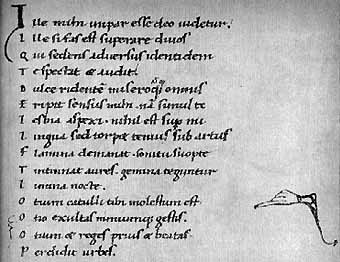 Ille mihi impar esse deo videtur.
Ille si fas est superare divos
Qui sedens adversus identidem
Te spectat & audit.
Dulce ridentē misero qͥ omnis
Eripit sensus mihi. nā simul te
Lesbia aspexi. nihil est sup mi
Lingua sed torpet tenuis sub artus
Flamina demanat. sonitu suopte
Tintinant aures. gemina teguntur
Lumina nocte.
Otium catulli tibi molestum est
Otio exultas nimiumq; gestis.
Otium & reges prius & beatas
Perdidit urbes.